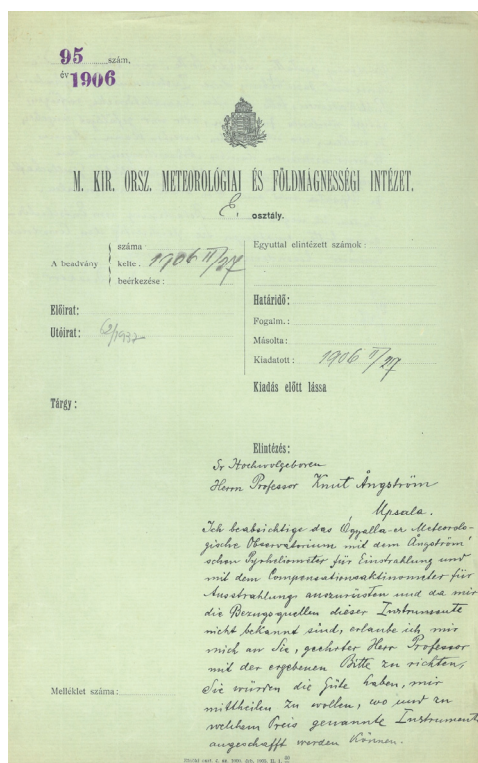 95 szám,
év 1906
M. KIR. ORSZ. METEOROLÓGIAI ÉS FÖLDMÁGNESSÉGI INTÉZET.
E. osztály.
A beadvány
száma
kelte: 1906 II/27
beérkezése:
Előirat:
Utóirat: 62/1937
Tárgy:
Melléklet száma:
Egyuttal elintézett számok:
Határidő:
Fogalm.:
Másolta:
Kiadatott: 1906 II/27
Kiadás előtt lássa
Elintézés:
Sr Hochwolgeboren
Herrn Professor Knut Ångström
Upsala.
Ich beabsichtige das Ógyalla-er Meteorolo-
gische Observatorium mit dem Ångström'
schen Pyrheliometer für Einstrahlung und
mit dem Compensationsaktinometer für
Ausstrahlung auszurüsten und da mir
die Bezugsquellen dieser Instrumente
nicht bekannt sind, erlaube ich mir
mich an Sie, geehrter Herr Professor
mit der ergebenen Bitte zu richten,
Sie würden die Güte haben, mir
mittheilen zu wollen, wo und zu
welchem Preis genannte Instrumente
angeschafft werden können.